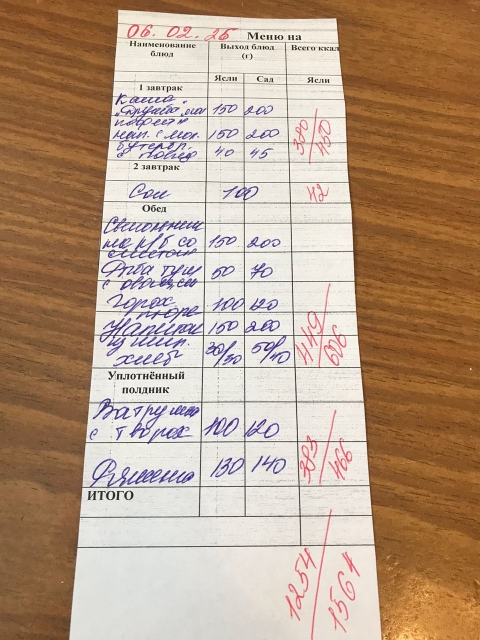 06.02.25 Меню на
Наименование блюд Выход блюд (г) Всего ккал
Ясли Сад Ясли
1 завтрак
Каша
"Дружба" мол 150 200
нап. с мол. 150 200
бутерб.
с повид 40 45
380/450
2 завтрак
Сок 100 42
Обед
Свекольник
на р/б со
сметан 150 200
Рыба туш
с овощами 50 70
Горох
пюре 100 120
Напиток 150 200
из шип.
хлеб 30/30 50/40
449/606
Уплотнённый
полдник
Ватрушка
с творог 100 120
Ряженка 130 140
383/466
ИТОГО
1254/1564